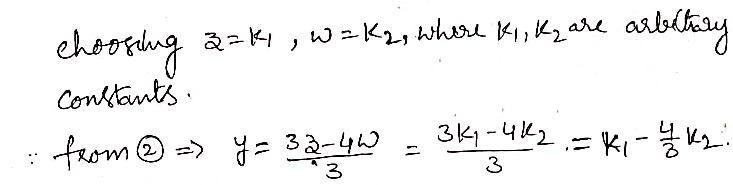 choosing z=k₁ , w=k₂, where k₁, k₂ are arbitrary
constants.
∵ from ② => y = (3z-4w)/3 = (3k₁-4k₂)/3 .= k₁ - 4/3 k₂.